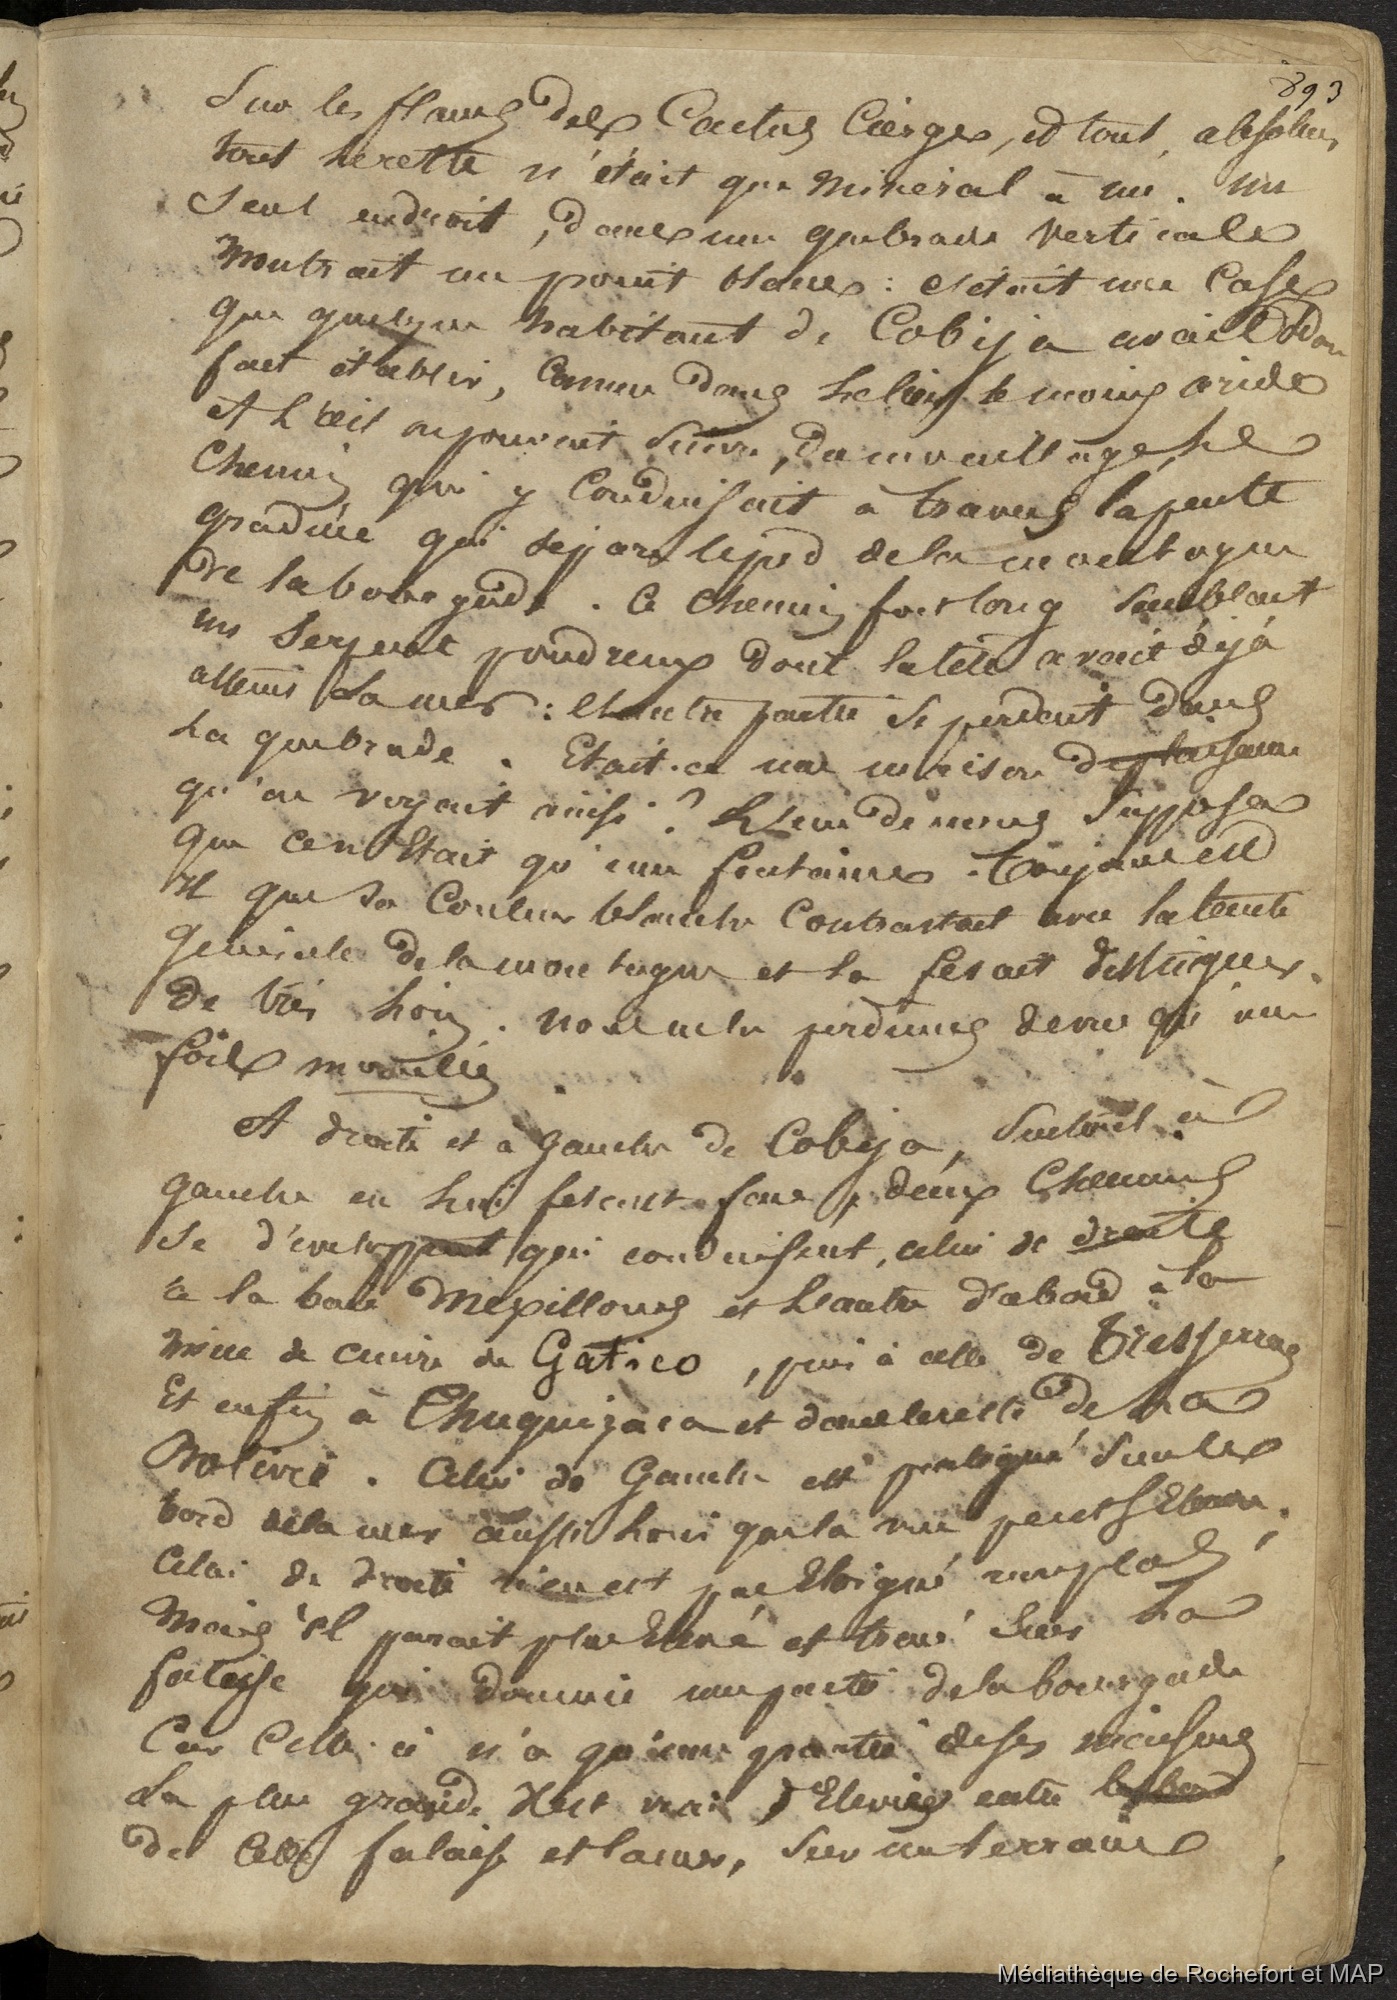 893
Sur les flancs des Cactus Cierges, et tout, absolum
tout le reste n'était que minéral à nu. un
seul endroit, dans une quebrade verticale
montrait un point blanc : c'était une Case
que quelque habitant de Cobija avait dû
fait établir, comme dans le lieu le moins aride
et l'œil en pouvait suivre, du mouillage, le
chemin qui y conduisait à travers la pente
graduée qui sépare le pied de la montagne
de la bourgade. Ce chemin fort long semblait
un serpent poudreux dont la tête avait déjà
atteint la mer : l'autre partie se perdait dans
la quebrade. Etait-ce une maison de plaisance
qu'on voyait ainsi ? L'un de nous supposa
que ce n'était qu'une fontaine. Toujours est
il que sa couleur blanche contrastait avec la teinte
générale de la montagne et la fesait distinguer
de très loin. nous ne la perdimes de vue qu'une
fois mouillés.
A droite et à gauche de Cobija, surtout à
gauche en lui fesant face, deux chemins
se développent qui conduisent, celui de droite
à la baie Mexillones et l'autre d'abord à la
mine de cuivre de Gatico, puis à celle de
Et enfin à Chuquizaca et dans le reste de la
Bolivie. Celui de gauche est prolongé sur le
bord de la mer aussi loin que la vue peut s'étendre.
Celui de droite n'en est pas éloigné non plus
mais il parait plus élevé et tracé sur la
falaise qui domine une partie de la bourgade
Car celle-ci n'a qu'une partie de ses maisons
La plus grande il est vrai, élevées entre le bord
de cette falaise et la mer, sur un terrain
Médiathèque de Rochefort et MAP